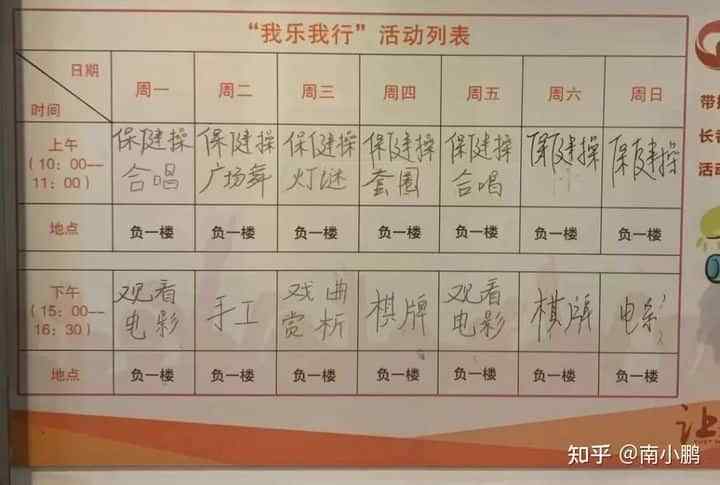 “我乐我行”活动列表
日期
时间
周一 周二 周三 周四 周五 周六 周日
上午
(10：00—
11：00)
保健操 保健操 保健操 保健操 保健操 保健操 保健操
合唱 广场舞 灯谜 套圈 合唱
地点 负一楼 负一楼 负一楼 负一楼 负一楼 负一楼 负一楼
下午
(15：00—
16：30)
观看 手工 戏曲 棋牌 观看 棋牌 电影
电影 赏析 电影
地点 负一楼 负一楼 负一楼 负一楼 负一楼 负一楼 负一楼
长者
活动
让
知乎 @南小鹏